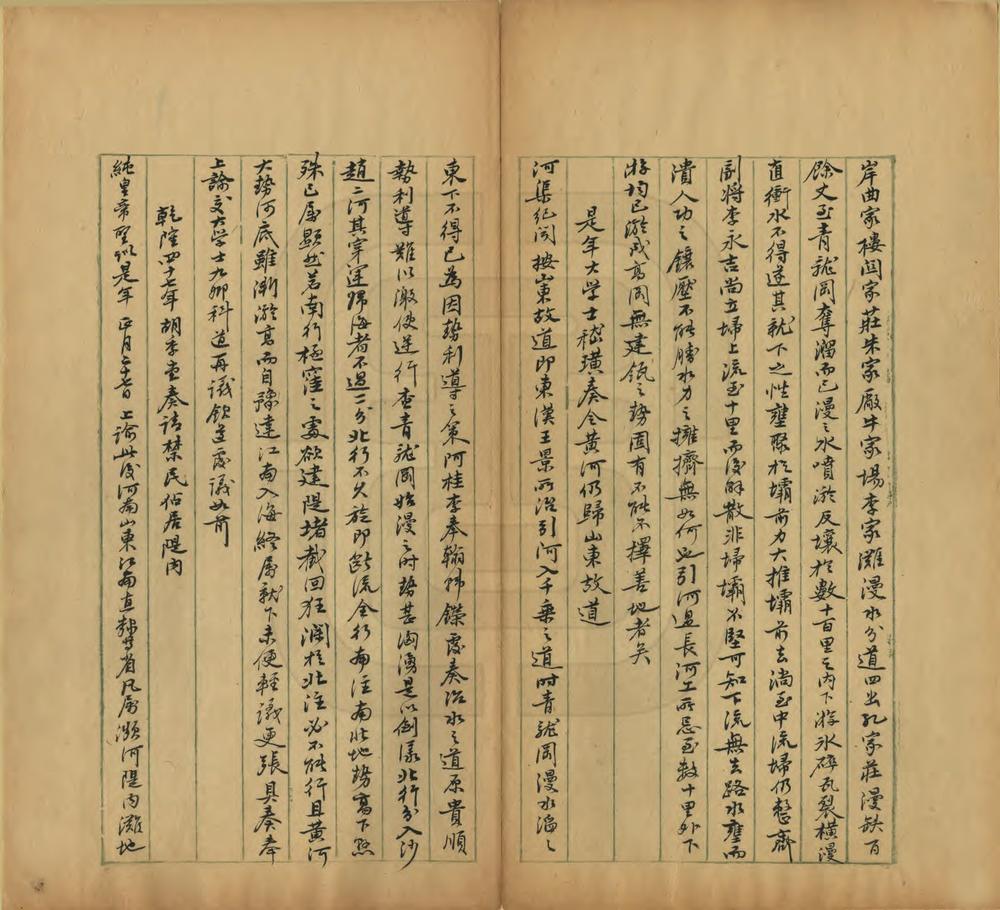 岸曲家樓閻家莊朱家廠牛家場李家灘漫水分道四出孔家莊漫缺百
餘丈至青龍岡奪溜而已漫之水噴淤反壤於數十百里之內下游冰碎瓦裂橫漫
直衝水不得遂其就下之性壅聚於壩前力大推壩前去淌至中流埽仍整齊
副將李永吉尚立埽上流至十里而後解散非埽壩不堅可知下流無去路水壅而
潰人功之鑲壓不能勝水力之擁擠無如何也引河過長河工所忌至數十里外下
游均已淤成高岡無建瓴之勢固有不能不擇善地者矣
是年大學士嵇璜奏令黃河仍歸山東故道
河渠紀聞按山東故道即東漢王景所治引河入千乘之道時青龍岡漫水滔之
東下不得已為因勢利導之策阿桂李奉翰韓鑅覆奏治水之道原貴順
勢利導難以激使逆行查青龍岡始漫之時勢甚洶湧是以倒漾北行分入沙
趙二河其穿運歸海者不過二分北行不久旋即斷流全行南注南北地勢高下懸
殊已屬顯然若南行極窪之處欲建隄堵截回狂瀾於北注必不能行且黃河
大勢河底雖漸淤高而自豫達江南入海終屬就下未便輕議更張具奏奉
上諭交大學士九卿科道再議欽遵覆議如前
乾隆四十七年胡季堂奏請禁民佔居隄內
純皇帝聖訓是年正月二十七日上諭此後河南山東江南直隸等省凡屬瀕河隄內灘地